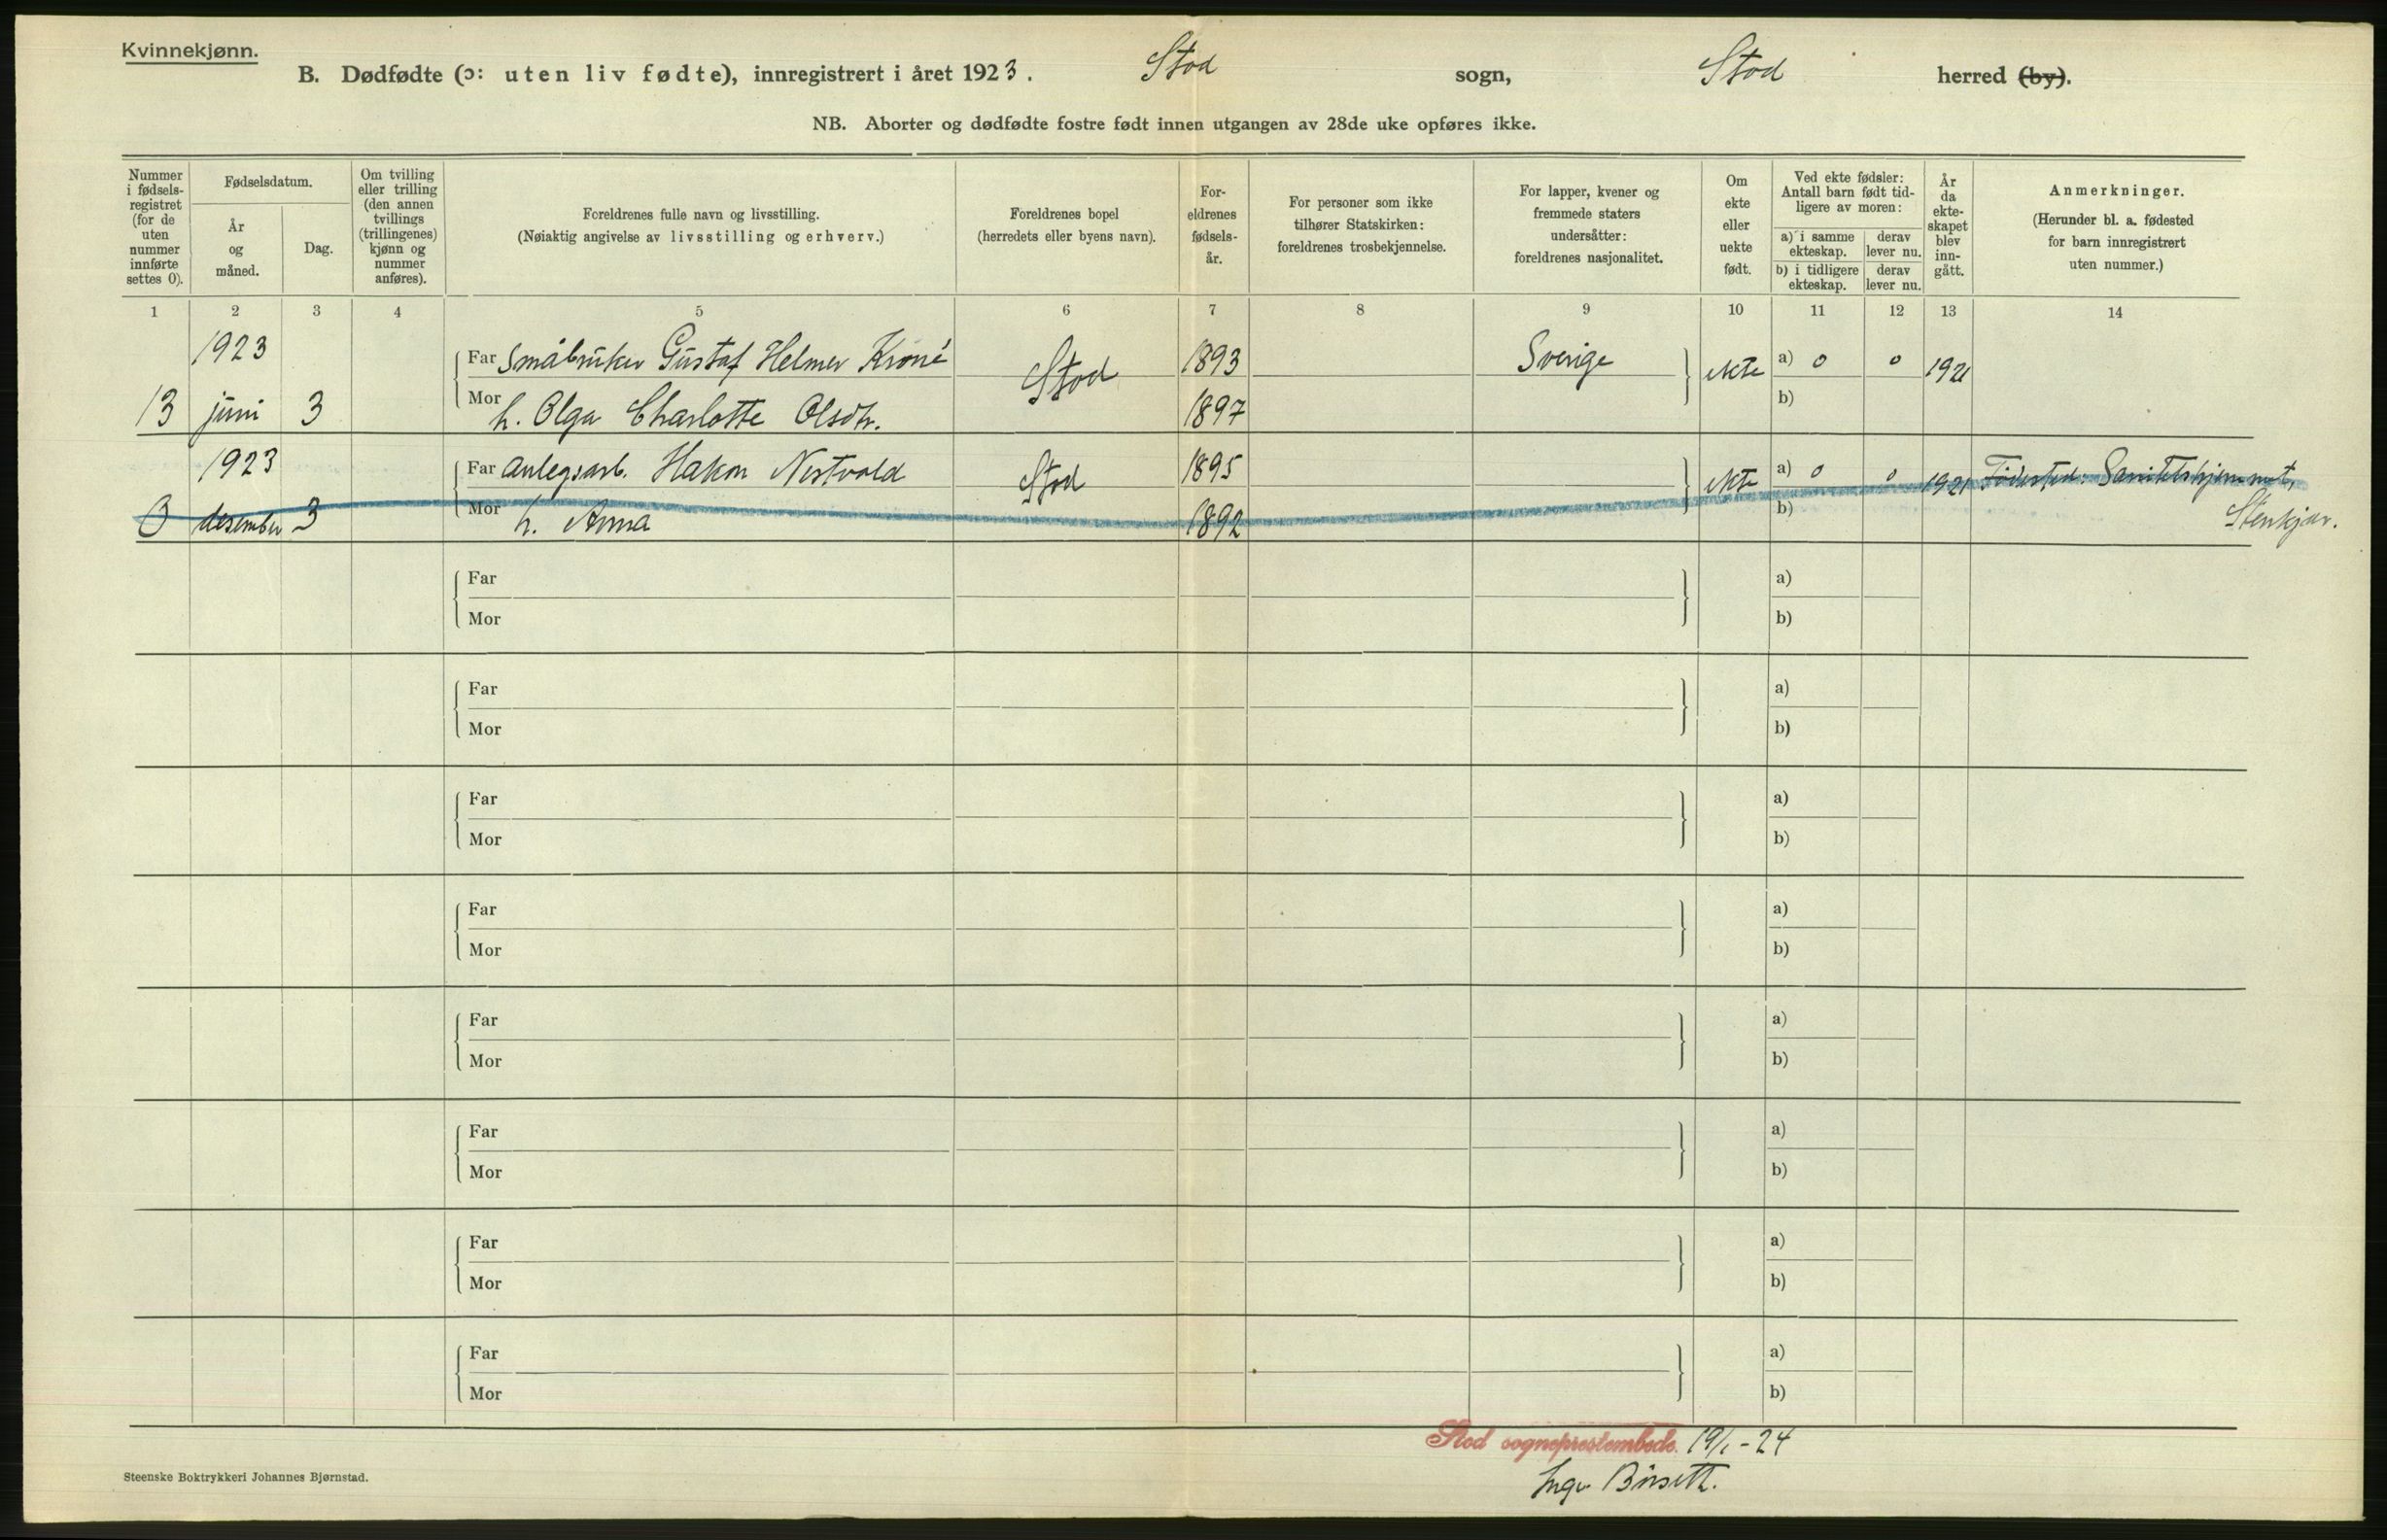 Kvinnekjønn.
B. Dødfødte (ɔ: uten liv fødte), innregistrert i året 1923. Stod sogn, Stod herred (by).
NB. Aborter og dødfødte fostre født innen utgangen av 28de uke opføres ikke.
Nummer i fødsels-registret (for de uten nummer innførte settes 0).
Fødselsdatum.
År og måned.
Dag.
Om tvilling eller trilling (den annen tvillings (trillingenes) kjønn og nummer anføres).
Foreldrenes fulle navn og livsstilling.
(Nøiaktig angivelse av livsstilling og erhverv.)
Foreldrenes bopel
(herredets eller byens navn).
For-eldrenes fødsels-år.
For personer som ikke tilhører Statskirken: foreldrenes trosbekjennelse.
For lapper, kvener og fremmede staters undersåtter: foreldrenes nasjonalitet.
Om ekte eller uekte født.
Ved ekte fødsler: Antall barn født tid-ligere av moren:
a) i samme ekteskap. derav lever nu.
b) i tidligere ekteskap. derav lever nu.
År da ekte-skapet blev inn-gått.
Anmerkninger.
(Herunder bl. a. fødested for barn innregistrert uten nummer.)
1 2 3 4 5 6 7 8 9 10 11 12 13 14
1923 Far Småbruker Gustaf Helmer Kroné Stod 1893 Sverige ekte a) 0 0 1921
13 juni 3 Mor h. Olga Charlotte Olsdtr. 1897 b)
1923 Far anlegsarb. Hakon Nestvold Stod 1895 ekte a) 0 0 1921 Fødested: Sanitetshjemmet,
0 desember 3 Mor h. Anna 1892 b) Stenkjær.
Far a)
Mor b)
Far a)
Mor b)
Far a)
Mor b)
Far a)
Mor b)
Far a)
Mor b)
Far a)
Mor b)
Far a)
Mor b)
Far a)
Mor b)
Stod sogneprestembede. 19/1-24
Steenske Boktrykkeri Johannes Bjørnstad.